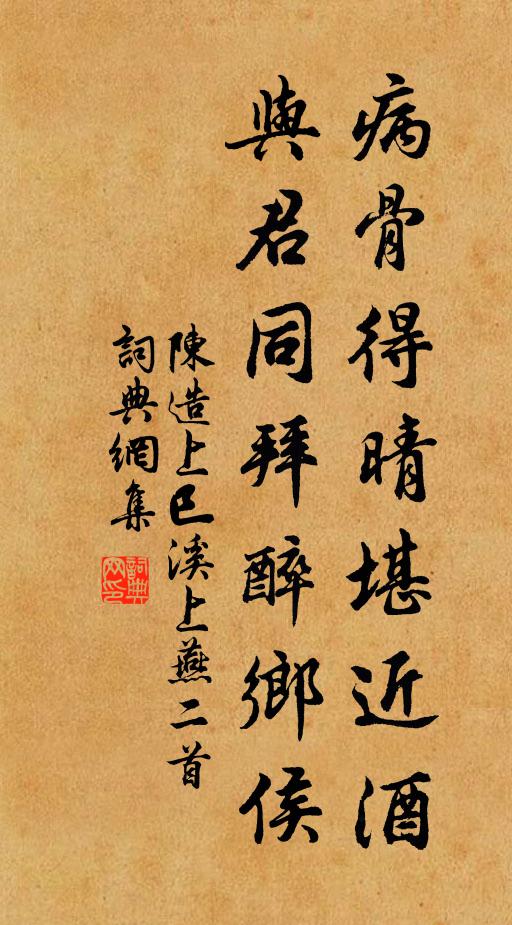 病骨得晴堪近酒
與君同拜醉鄉侯
陳造上巳溪上燕二首
詞典網集
詞典網印